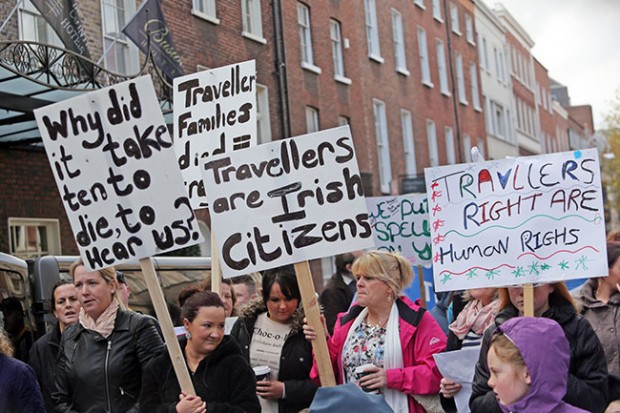 Why did
it take
ten to
die, to
Hear us?
Traveller
Families
died =
Travellers
are Irish
Citizens
TRAVLLERS
RIGHT ARE
HUMAN RIGHS
PUT
SPELL
ON Y
CHOC-O-L